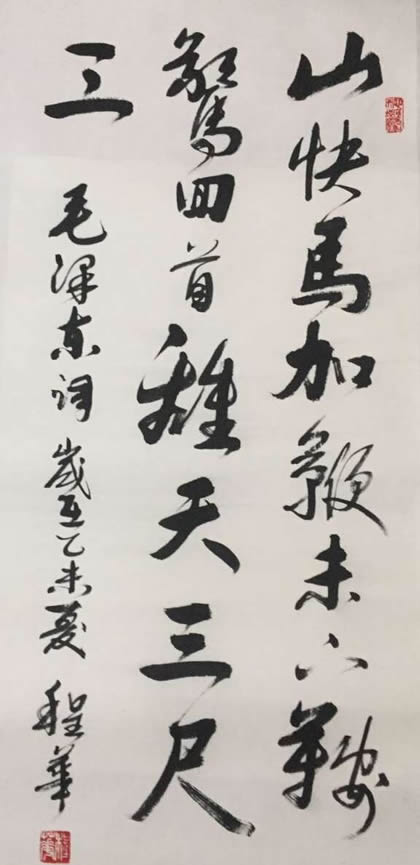 山快馬加鞭未下鞍
驚回首離天三尺
三 毛泽东词 歲在乙未夏 程華